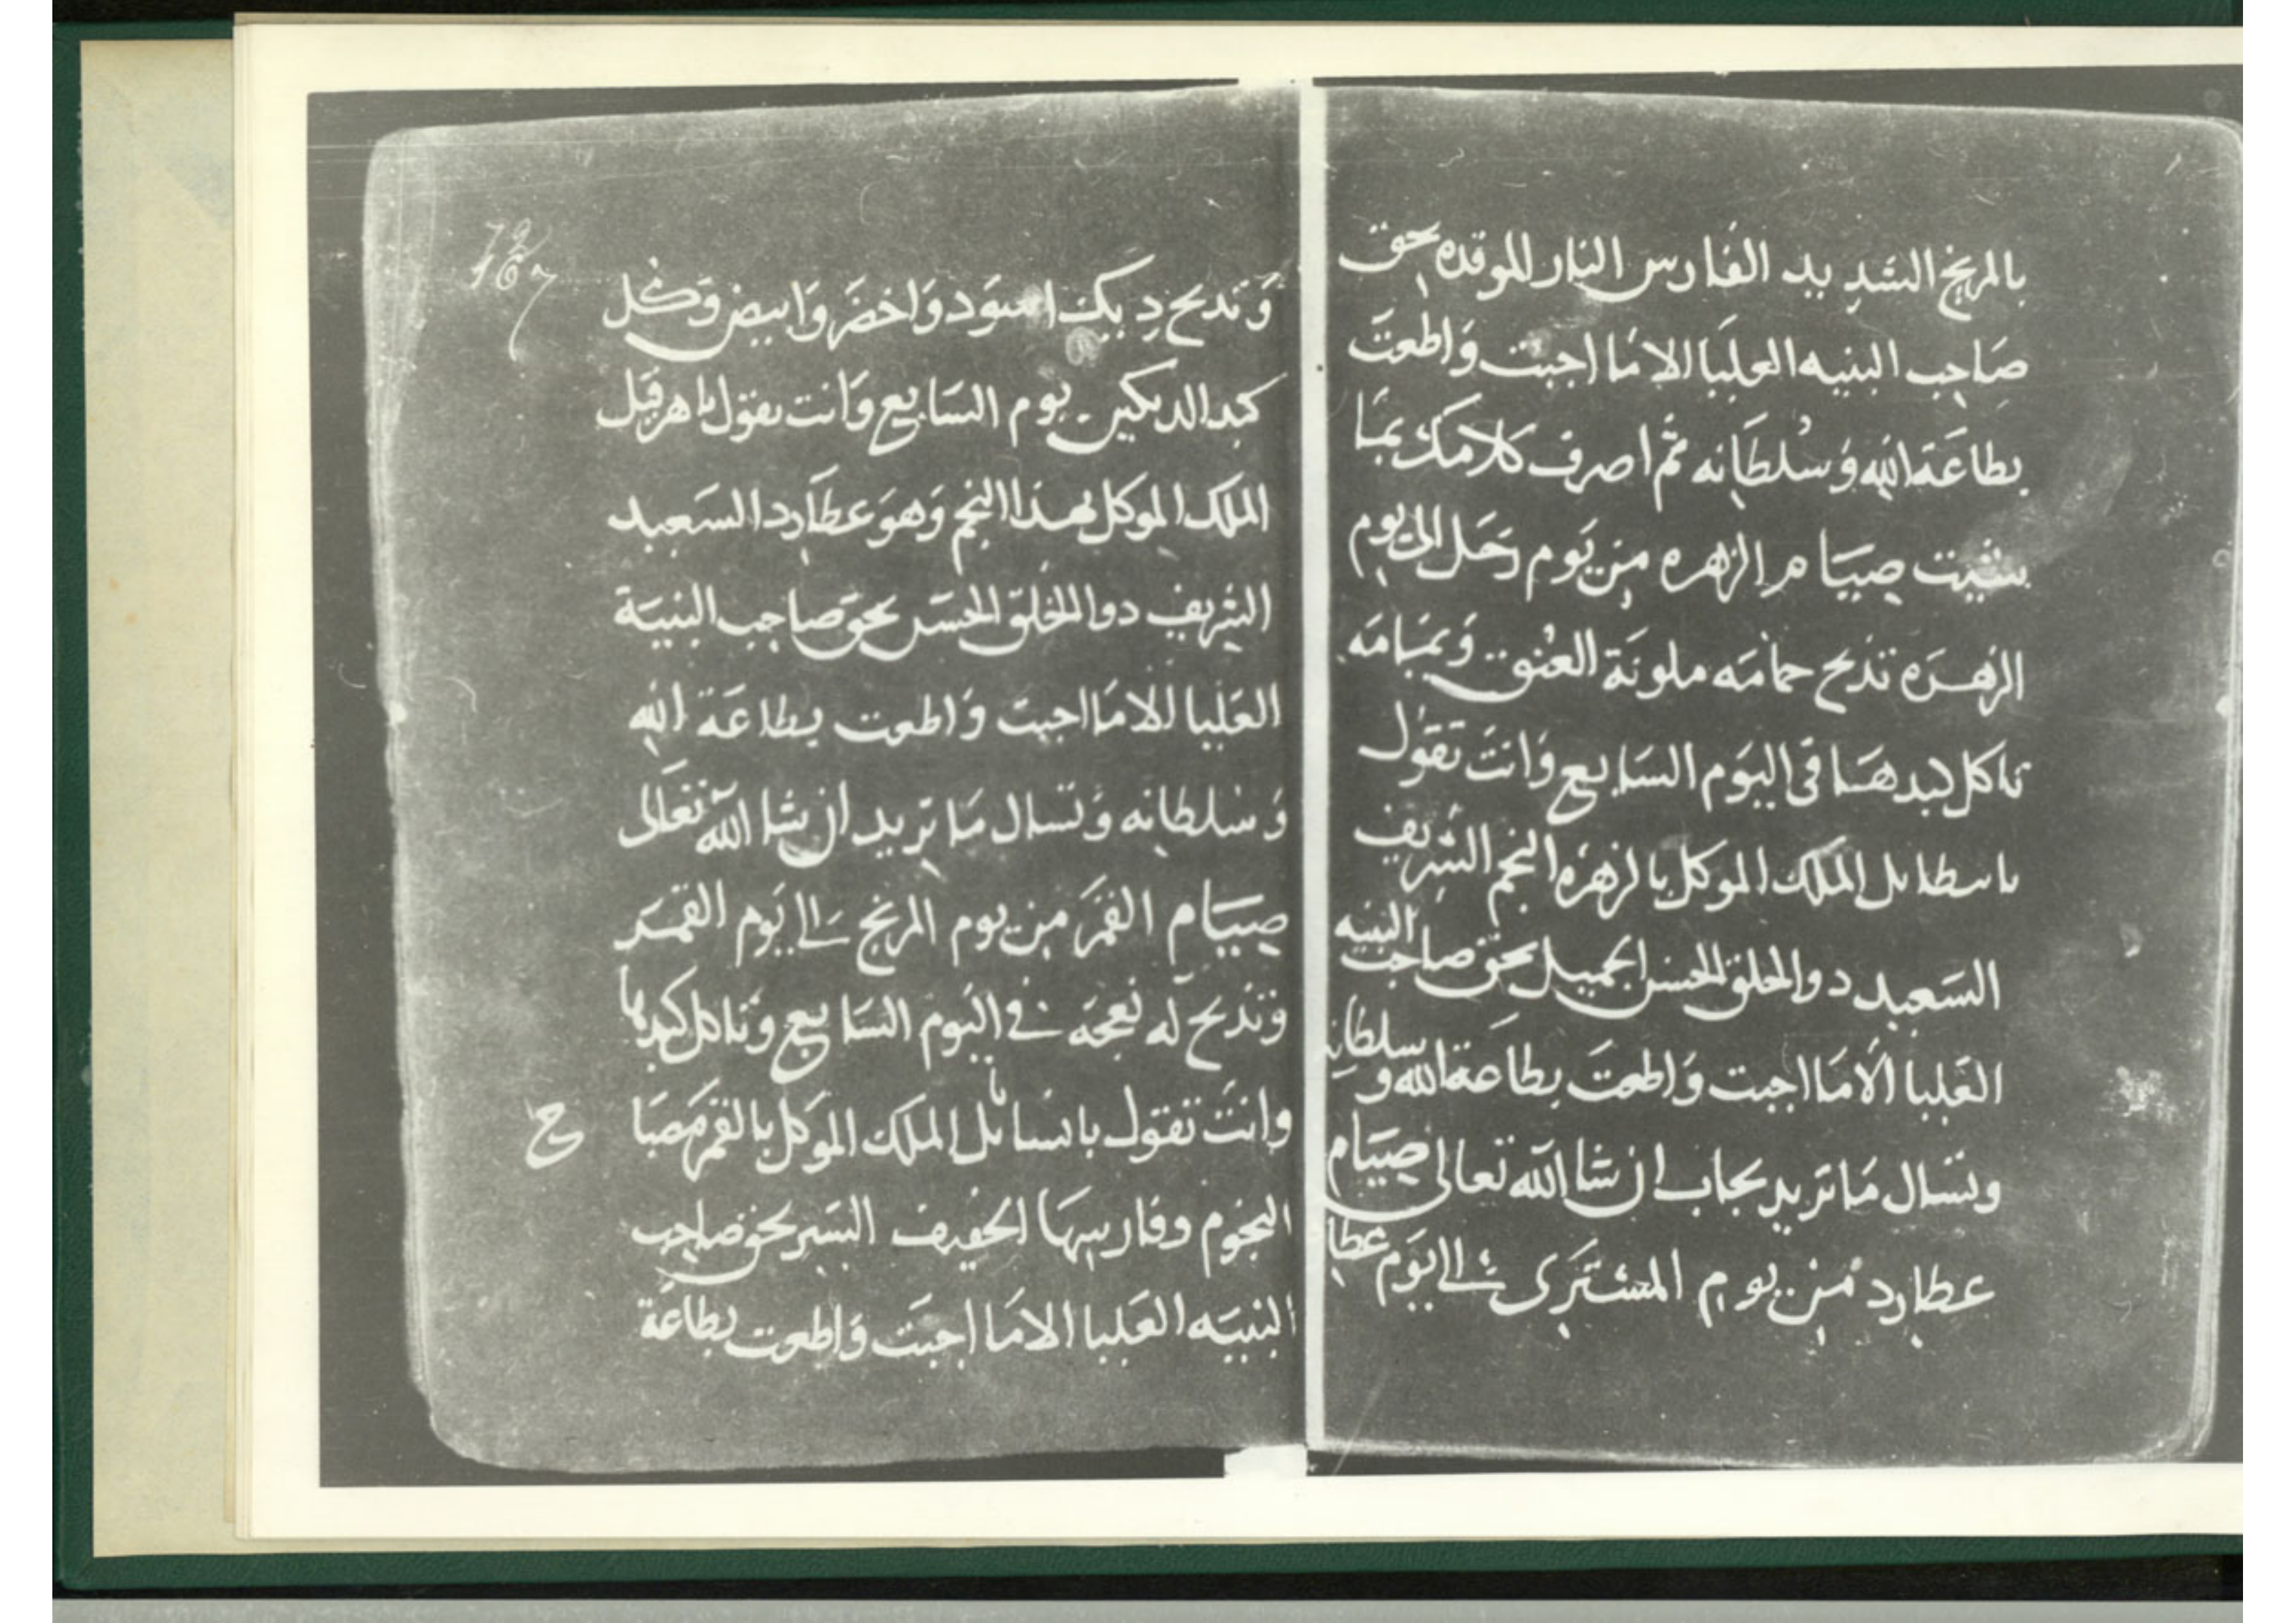 بالمريخ الشديد الفارس النار الموقده بحق
صاحب البنيه العليا الا ما اجبت واطعت
بطاعة الله وسلطانه ثم اصرف كلامك بما
شيت صيام الزهره من يوم زحل الى يوم
الزهره تذبح حمامه ملونة العنق ويمامه
تاكل كبدها فى اليوم السابع وانت تقول
الملك الموكل بالزهره النجم الشريف
السعيد دوا الخلق الحسن الجميل بحق صاحب البنيه
العليا الا ما اجبت واطعت بطاعة الله وسلطانه
وتسال ما تريد تجاب ان شا الله تعالى صيام
عطارد من يوم المشترى الى يوم عطا
وتدبح ديك اسود واخضر وابيض وكل
كبد الديكين يوم السابع وانت تقول يا هرقيل
الملك الموكل بهذا النجم وهو عطارد السعيد
الشريف دوا الخلق الحسن بحق صاحب البنية
العليا الا ما اجبت واطعت بطاعة الله
وسلطانه وتسال ما تريد ان شا الله تعالى
صيام القمر من يوم المريخ الى يوم القمر
وتذبح له نعجه في اليوم السابع وتاكل كبدها
وانت تقول الملك الموكل بالقمر مصبا
ح
النجوم وفارسها الخفيف السير بحق صاحب
البنيه العليا الا ما اجبت واطعت بطاعة